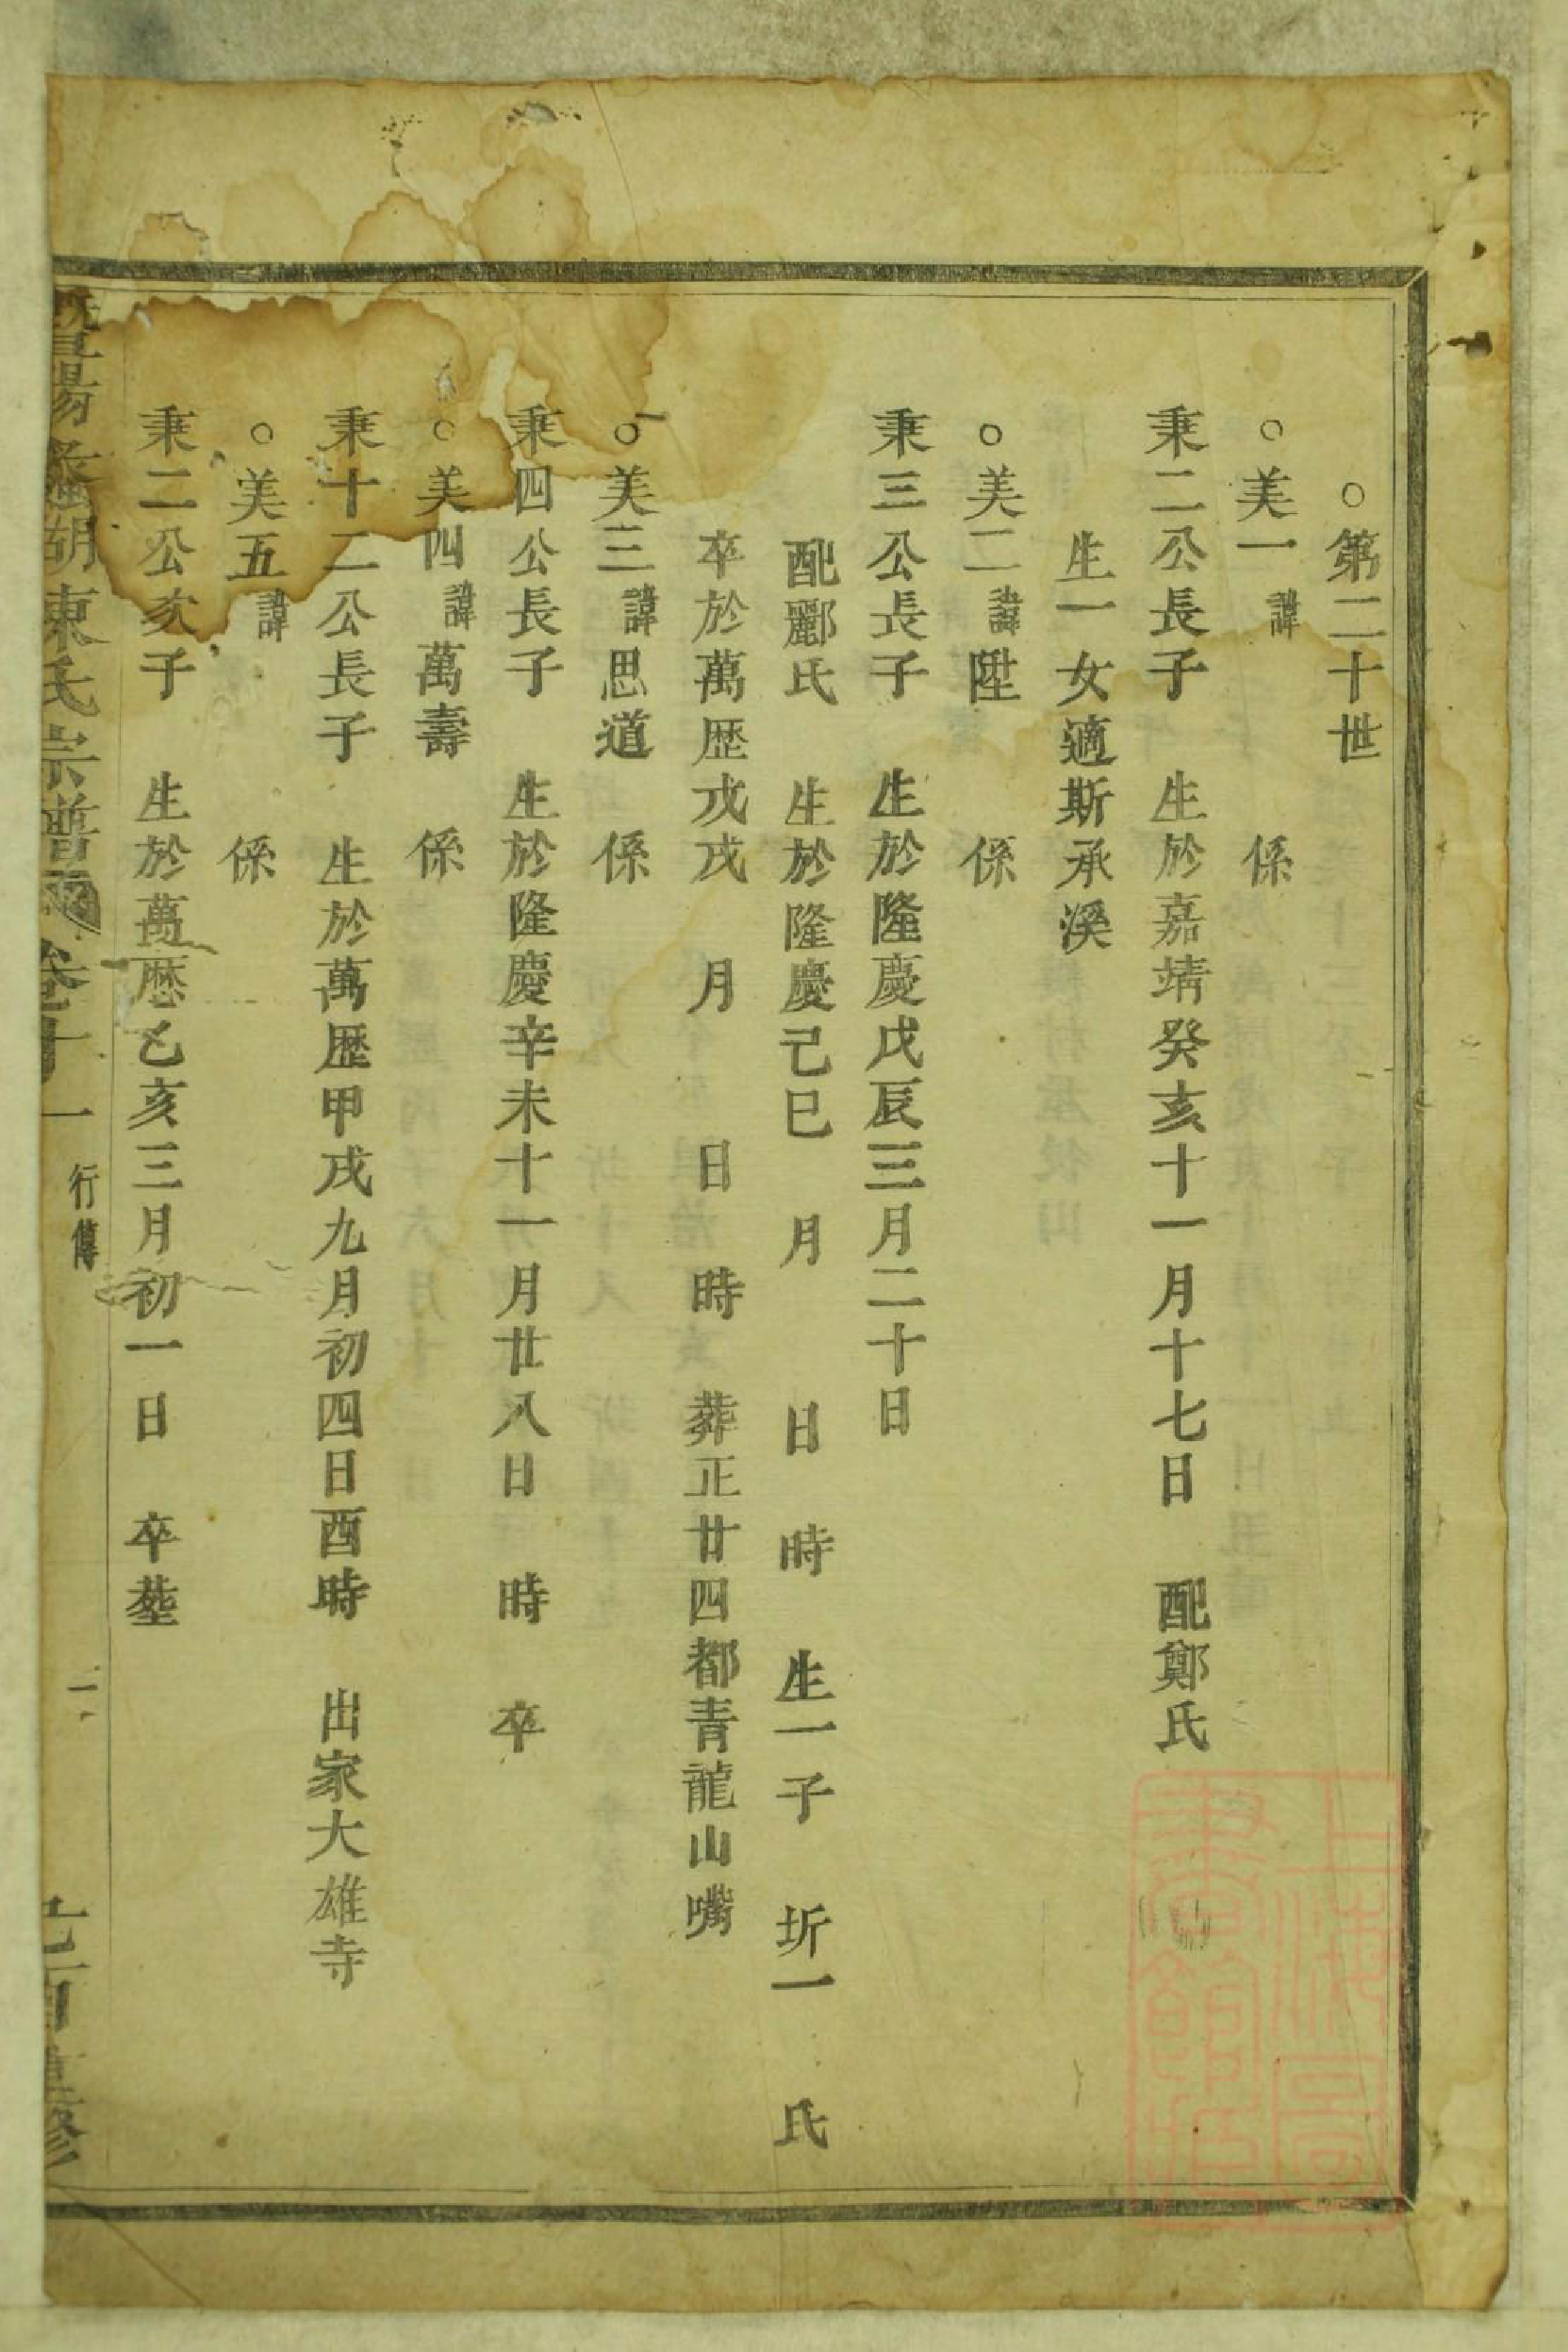 ○第二十世
○美一諱　係
秉二公長子　生於嘉靖癸亥十一月十七日　配鄭氏
生一女適斯承溪
○美二諱陞　係
秉三公長子　生於隆慶戊辰三月二十日
配酈氏　生於隆慶己巳　月　日　時　生一子　圻一　氏
卒於萬歷戊戌　月　日　時　葬正廿四都青龍山嘴
○美三諱思道　係
秉四公長子　生於隆慶辛未十一月廿八日　時　卒
○美四諱萬壽　係
秉十二公長子　生於萬歷甲戌九月初四日酉時　出家大雄寺
○美五諱　係
秉二公次子　生於萬歷乙亥三月初一日　卒塟
暨陽　湖東氏宗譜　卷十一　行傳　二　重修
上海圖書館藏